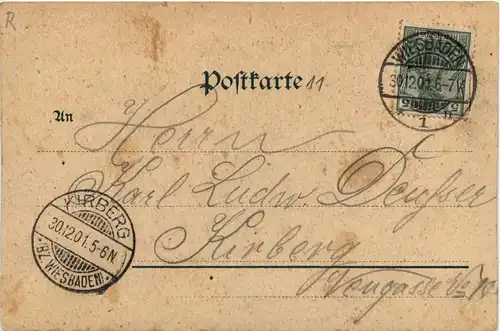 R
WIESBADEN
30.12.01.6-7N
1
5 5
Postkarte 11
An
Herrn
Karl Ludw.
KIRBERG
30.12.01.5-6N.
*BZ. WIESBADEN*
Kirberg